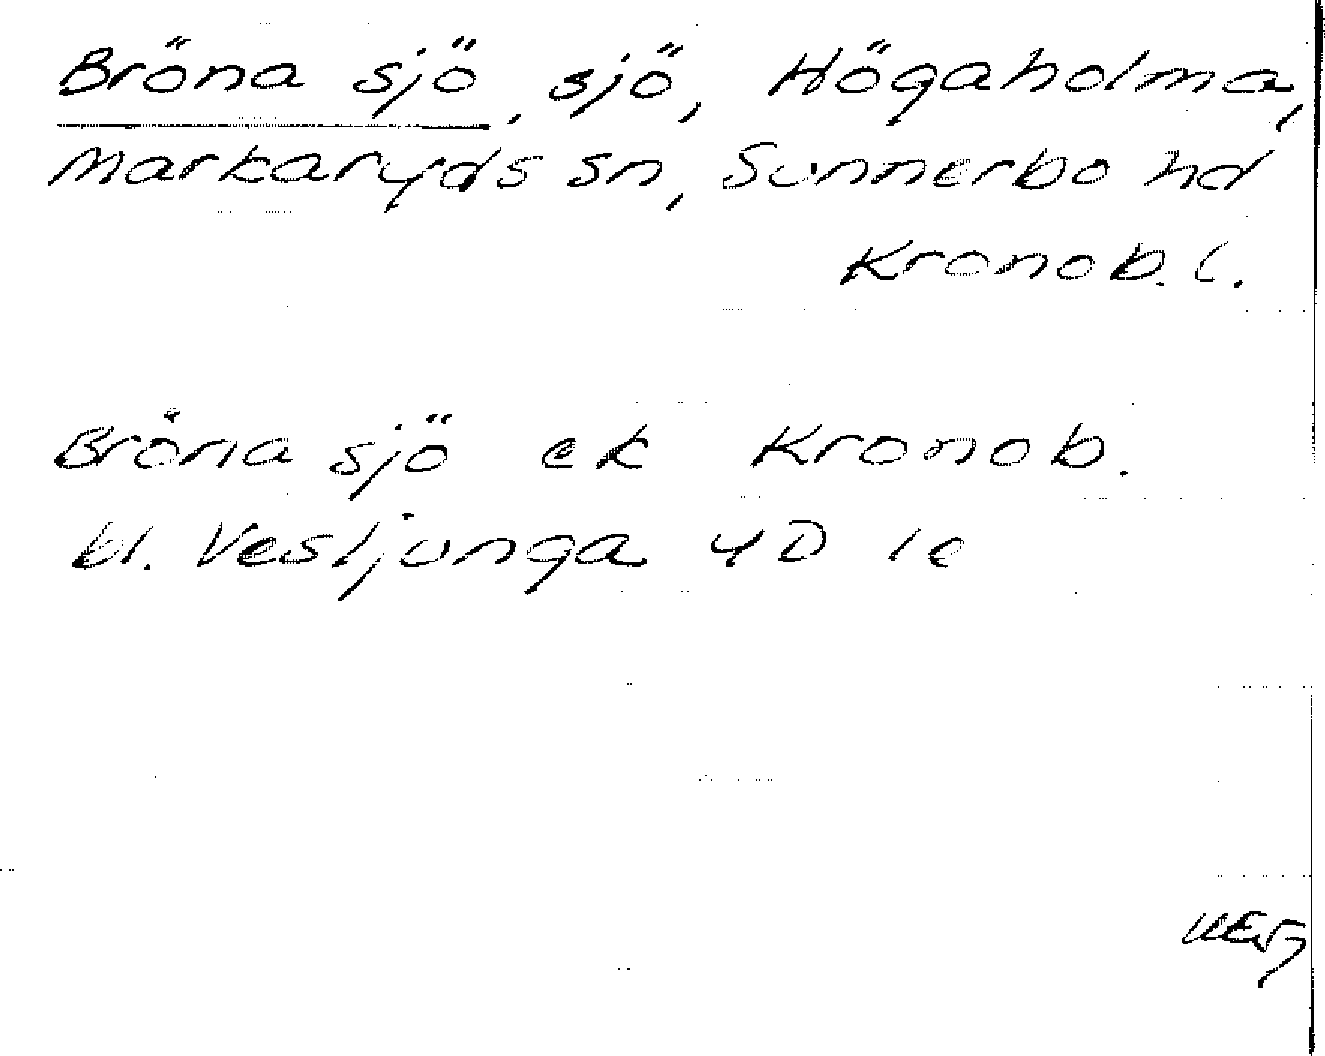 Bröna sjö, sjö, Högaholma,
Markaryds sn, Sunnerbo hd
Kronob. l.
Bröna sjö ek Kronob.
bl. Vesljunga 4D 1e